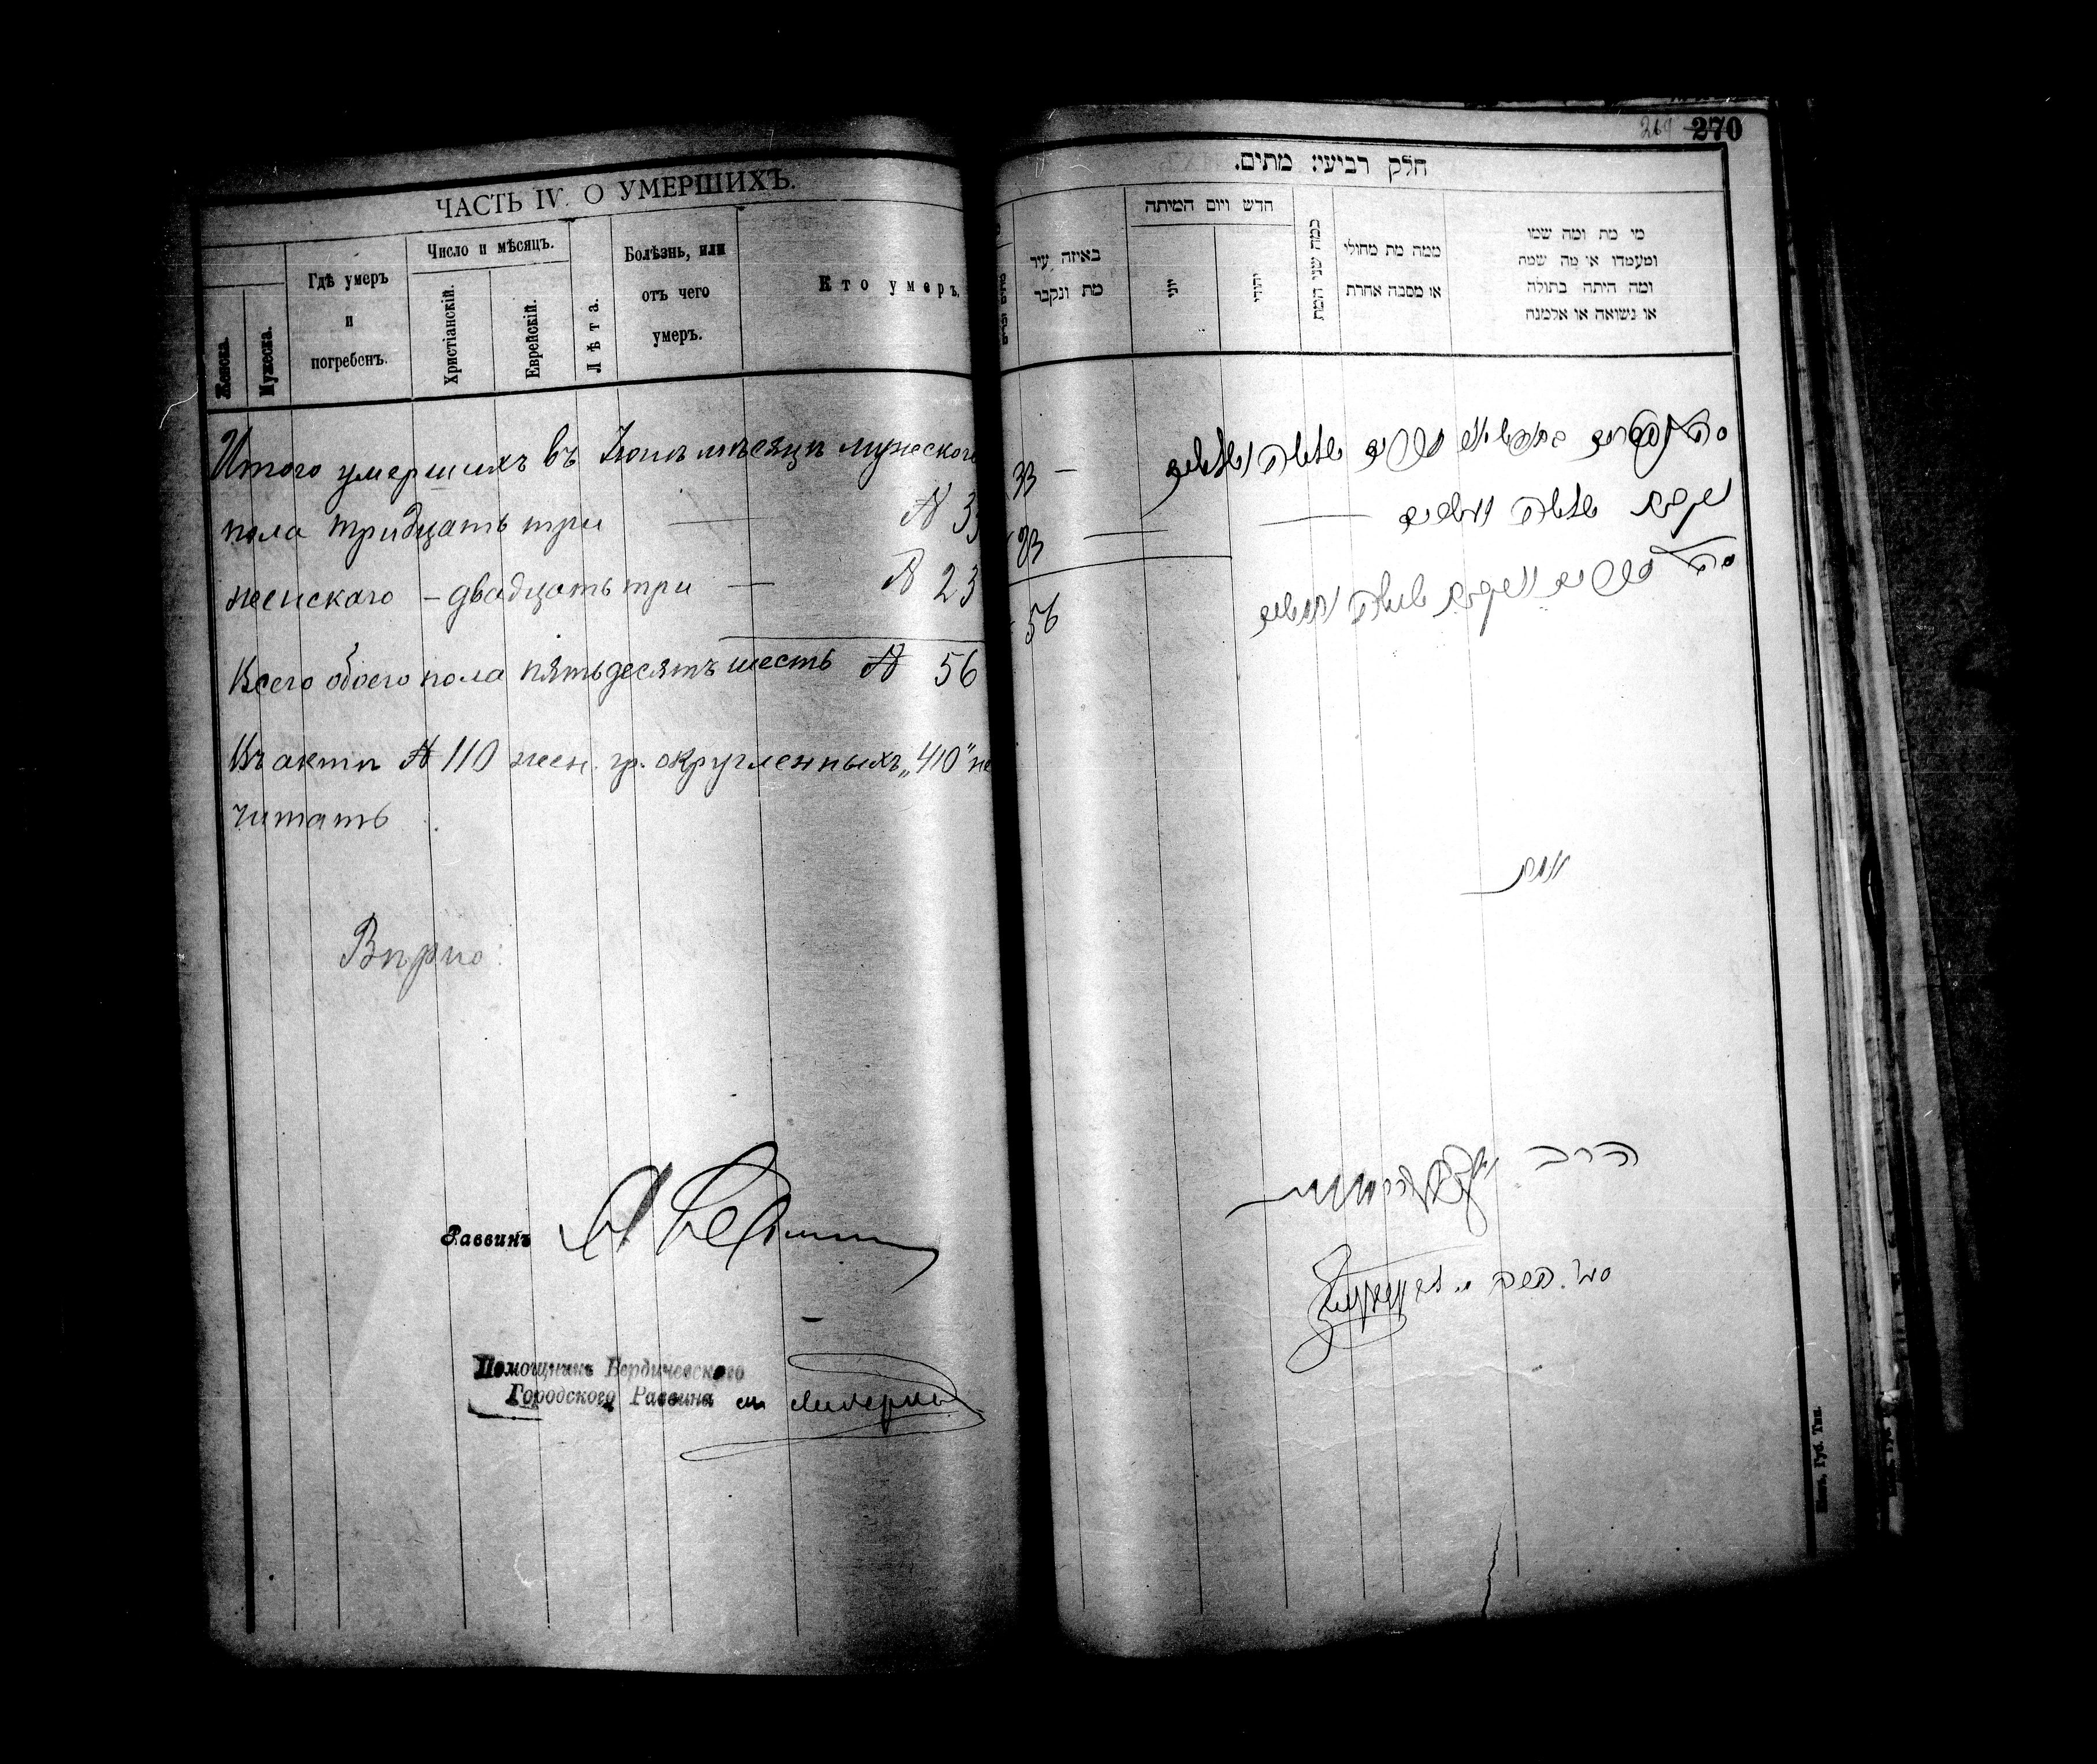 ЧАСТЬ IV. О УМЕРШИХЪ.
Женска.
Мужеска.
Гдѣ умеръ
и
погребенъ.
Число и мѣсяцъ.
Христіанскій.
Еврейскій.
Лѣта.
Болѣзнь, или
отъ чего
умеръ.
Кто умеръ.
Итого умершихъ въ мѣсяцѣ мужеского
пола тридцать три № 33
женскаго – двадцать три — № 23
Всего обоего пола пятьдесятъ шесть № 56
Въ актѣ № 110 жен. гр. округленныхъ „410" не
читать
Вѣрно:
Раввинъ
Помощникъ Бердичевского
Городского Раввина
269 270
חלק רביעי: מתים.
באיזה עיר
מת ונקבר
חדש ויום המיתה
יוני
יהודי
כמה שני המת
ממה מת מחולי
או מסבה אחרת
מי מת ומה שמו
ומעמדו או מה שמה
ומה היתה בתולה
או נשואה או אלמנה
זכרים שלשה ושלשים 33 —
נקבות שלשה ועשרים — 23
סה"כ זכרים ונקבות ששה וחמשים 56
הרב
Губ. Тип.